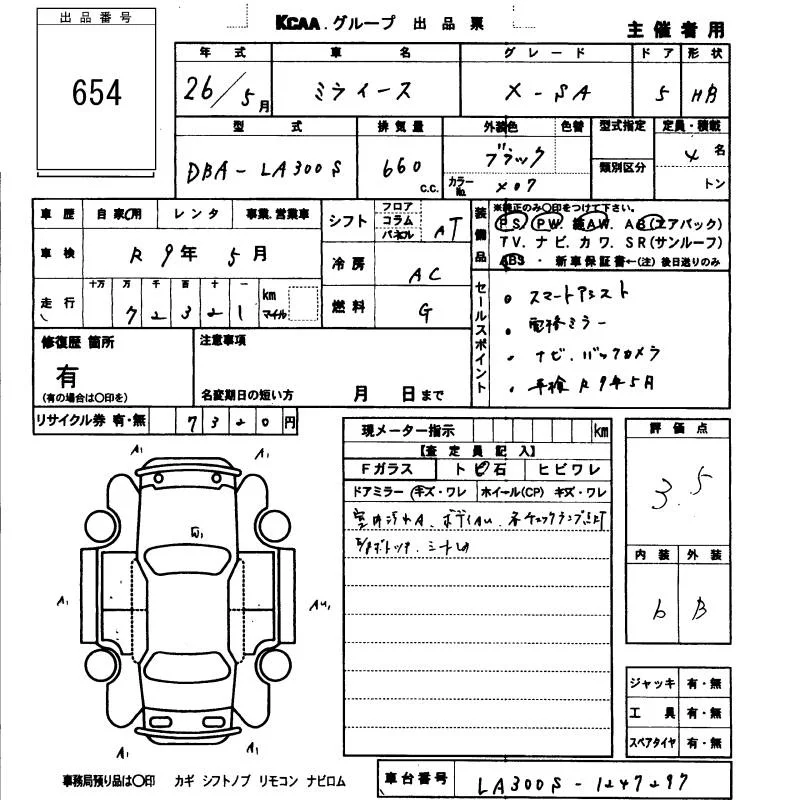 出品番号
654
KCAA.グループ 出品票
主催者用
年式 車名 グレード ドア 形状
26/5月 ミライース X-SA 5 HB
型式 排気量 外装色 色替 型式指定 定員・積載
DBA-LA300S 660 c.c. ブラック
カラーNo. X07 類別区分 4名
トン
車歴 自家用 レンタ 事業.営業車
シフト フロア コラム パネル AT
車検 R9年5月
冷房 AC
走行 十万 万 千 百 十 一 km マイル
72321
燃料 G
装備品 ※純正のみ○印をつけて下さい。
PS. PW. 純AW. AB(エアバック)
TV. ナビ. カワ. SR(サンルーフ)
ABS ・ 新車保証書←(注)後日送りのみ
セールスポイント
スマートアシスト
電格ミラー
ナビ.バックカメラ
車検R9年5月
修復歴 箇所
有
(有の場合は○印を)
注意事項
名変期日の短い方 月 日まで
リサイクル券 有・無 7320円
現メーター指示 km
【査定員記入】
Fガラス トビ石 ヒビワレ
ドアミラー(キズ・ワレ ホイール(CP) キズ・ワレ
室内汚れA. ボディAU.
評価点
3.5
内装 外装
b B
A1 A1
W1
A1 AU1
A1 A1
ジャッキ 有・無
工具 有・無
スペアタイヤ 有・無
事務局預り品は○印 カギ シフトノブ リモコン ナビロム
車台番号 LA300S-1247297